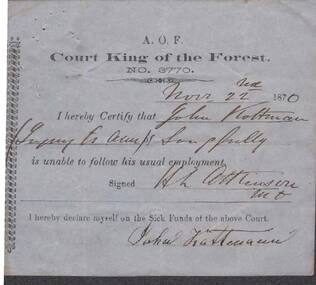 A. O. F.
Court King of the Forest.
NO. 3770.
Novr 22nd 1870
I hereby Certify that John Kottman
is unable to follow his usual employment
Signed H L Atkinson
M D
I hereby declare myself on the Sick Funds of the above Court.
John Kattmann